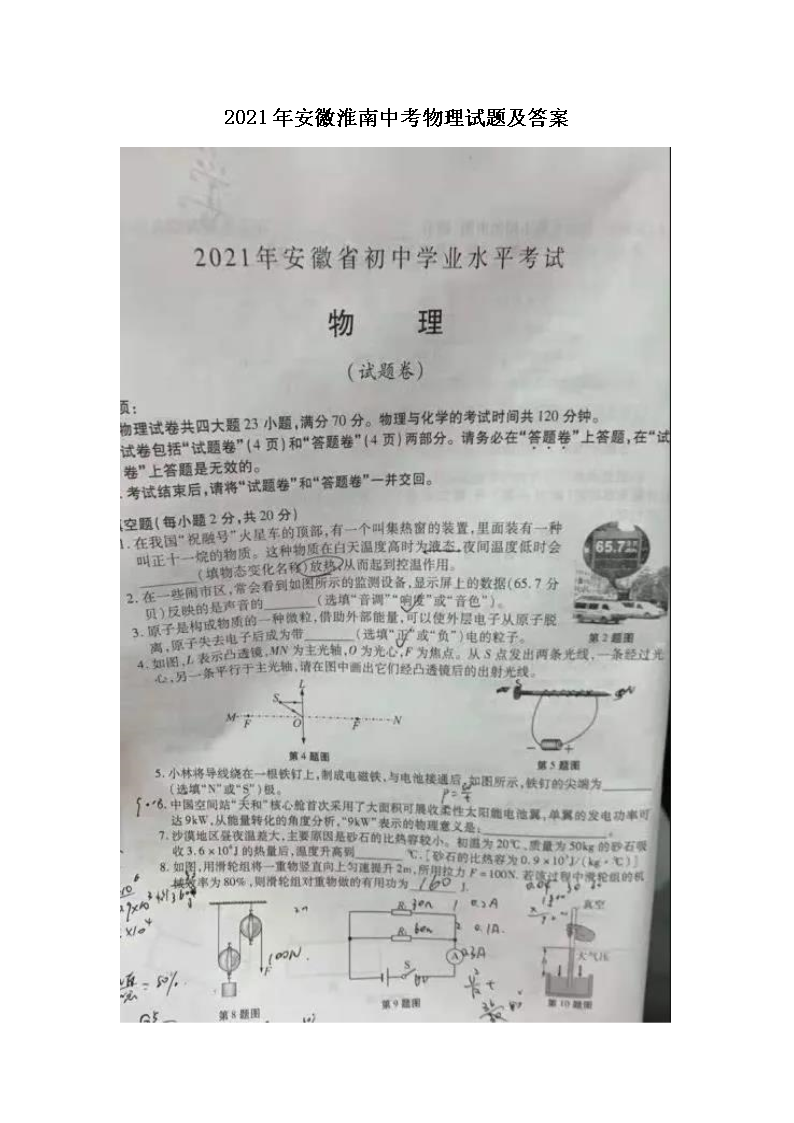 2021年安徽淮南中考物理试题及答案
2021年安徽省初中学业水平考试
物 理
(试题卷)
项:
物理试卷共四大题23小题,满分70分。物理与化学的考试时间共120分钟。
试卷包括“试题卷”(4页)和“答题卷”(4页)两部分。请务必在“答题卷”上答题,在“试
卷”上答题是无效的。
.考试结束后,请将“试题卷”和“答题卷”一并交回。
空题(每小题2分,共20分)
1.在我国“祝融号”火星车的顶部,有一个叫集热窗的装置,里面装有一种
叫正十一烷的物质。这种物质在白天温度高时为液态,夜间温度低时会
______(填物态变化名称)放热,从而起到控温作用。
2.在一些闹市区,常会看到如图所示的监测设备,显示屏上的数据(65.7分
贝)反映的是声音的______(选填“音调”“响度”或“音色”)。
3.原子是构成物质的一种微粒,借助外部能量,可以使外层电子从原子脱
离,原子失去电子后成为带______(选填“正”或“负”)电的粒子。
65.7
第2题图
4.如图,L表示凸透镜,MN为主光轴,O为光心,F为焦点。从S点发出两条光线,一条经过光
心,另一条平行于主光轴,请在图中画出它们经凸透镜后的出射光线。
L
S
M F O F N
第4题图
S N
- +
第5题图
5.小林将导线绕在一根铁钉上,制成电磁铁,与电池接通后,如图所示,铁钉的尖端为______
(选填“N”或“S”)极。
6.中国空间站“天和”核心舱首次采用了大面积可展收柔性太阳能电池翼,单翼的发电功率可
达9kW,从能量转化的角度分析,“9kW”表示的物理意义是:______。
7.沙漠地区昼夜温差大,主要原因是砂石的比热容较小。初温为20℃、质量为50kg的砂石吸
收3.6×10⁵J的热量后,温度升高到______℃.[砂石的比热容为0.9×10³J/(kg·℃)]
8.如图,用滑轮组将一重物竖直向上匀速提升2m,所用拉力F=100N.若该过程中滑轮组的机
械效率为80%,则滑轮组对重物做的有用功为 160 J.
100N
F
第8题图
R₁ 30Ω 1 0.2A
R₂ 60Ω 2 0.1A
A 0.3A
S
第9题图
真空
大气压
h
第10题图
= 80%